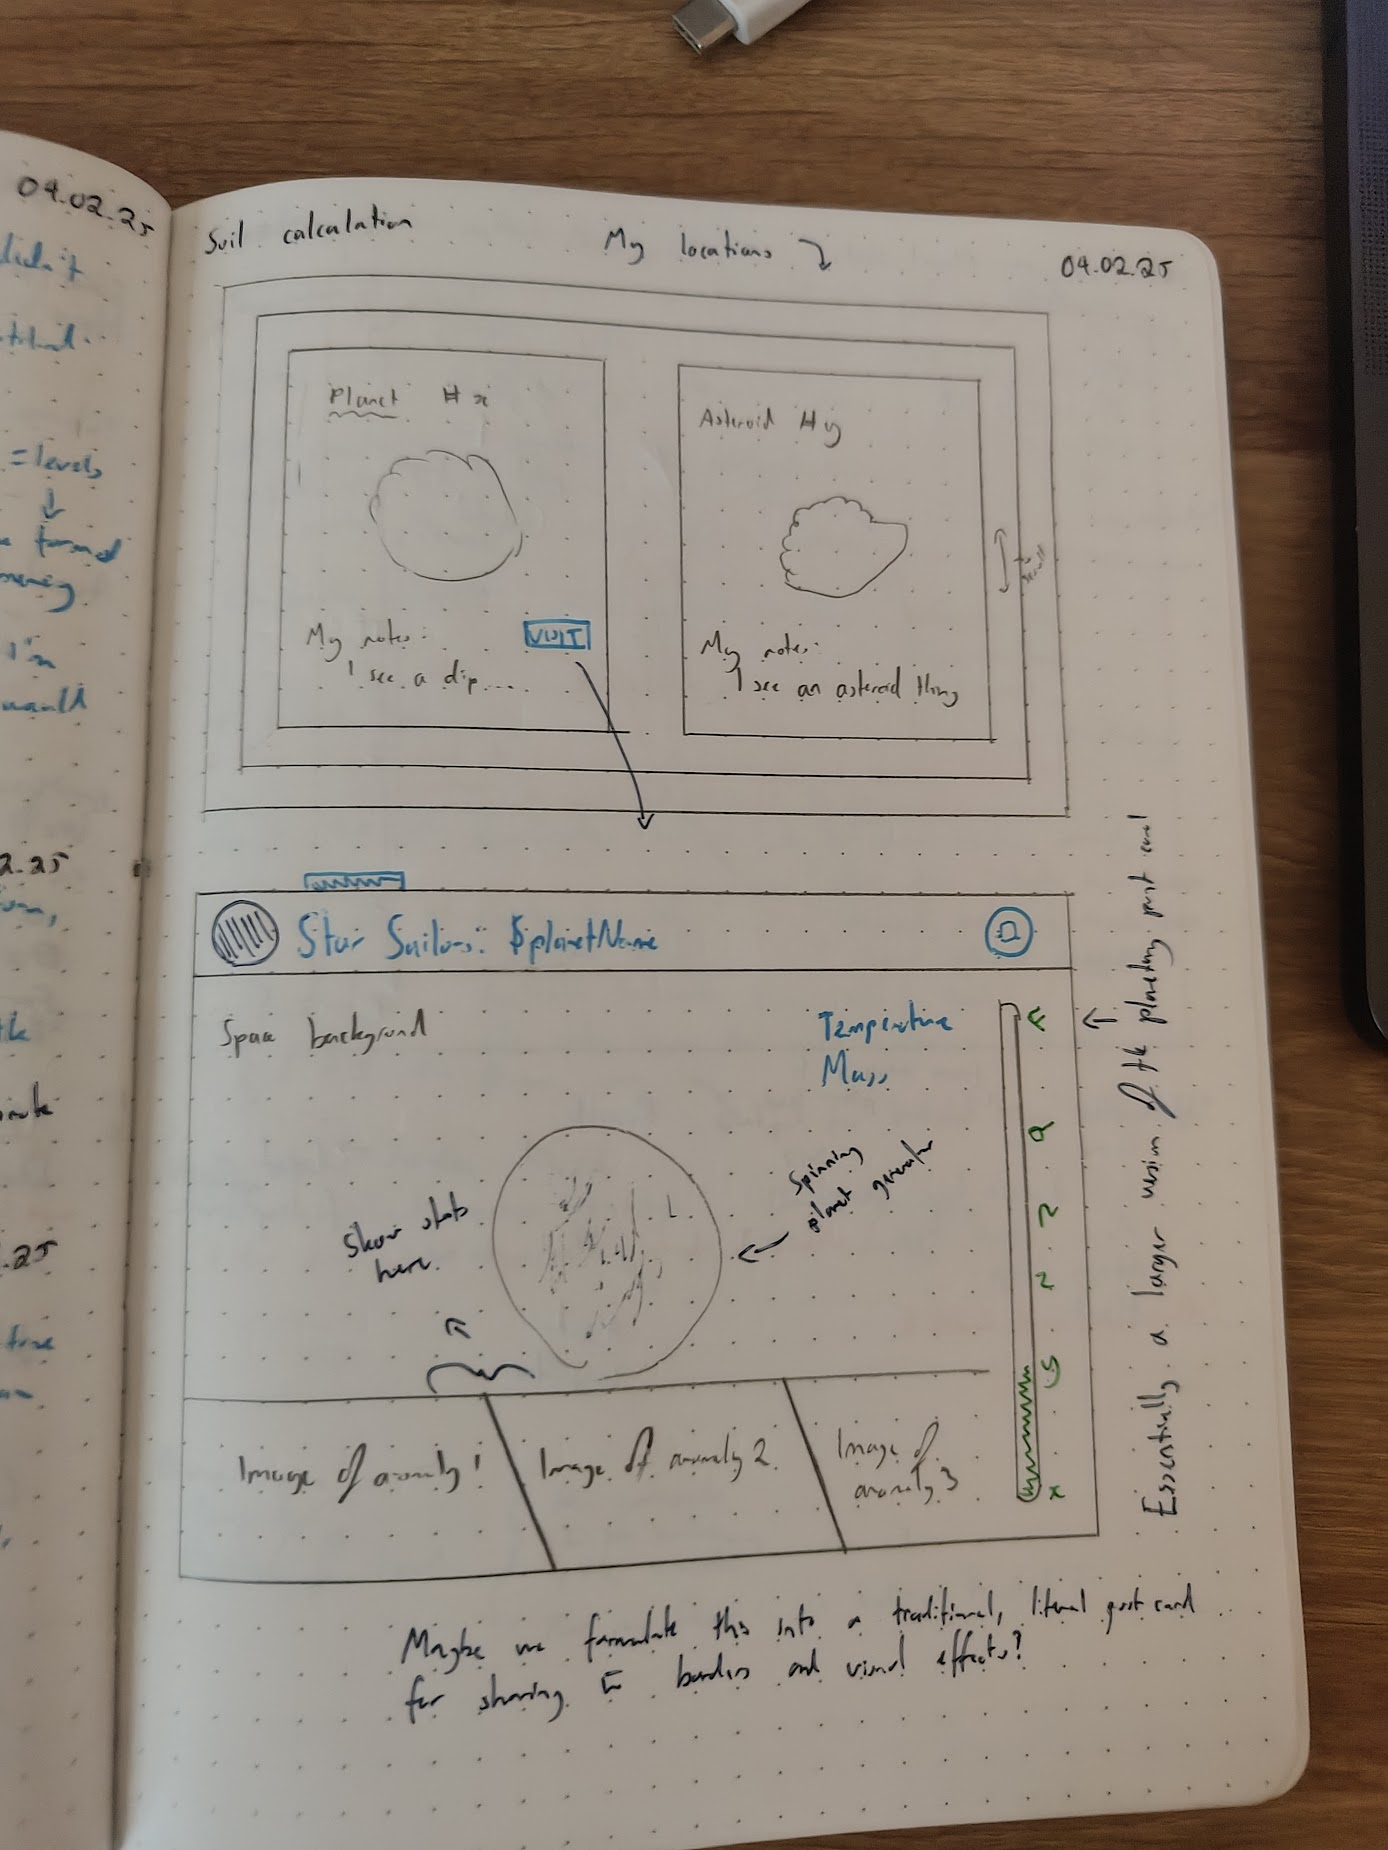 04.02.25
didn't
= levels
I'm
2.25
.25
Soil calculation
My locations
04.02.25
Planet #x
My notes:
I see a dip....
VISIT
Asteroid #y
My notes:
I see an asteroid thing
scroll
Star Sailors: $planetName
Space background
Temperature
Mass
Show stats
here.
Spinning
planet generator
Image of anomaly 1
Image of anomaly 2
Image of
anomaly 3
Essentially a larger version of the planetary post card
Maybe we formulate this into a traditional, literal post card
for sharing borders and visual effects?